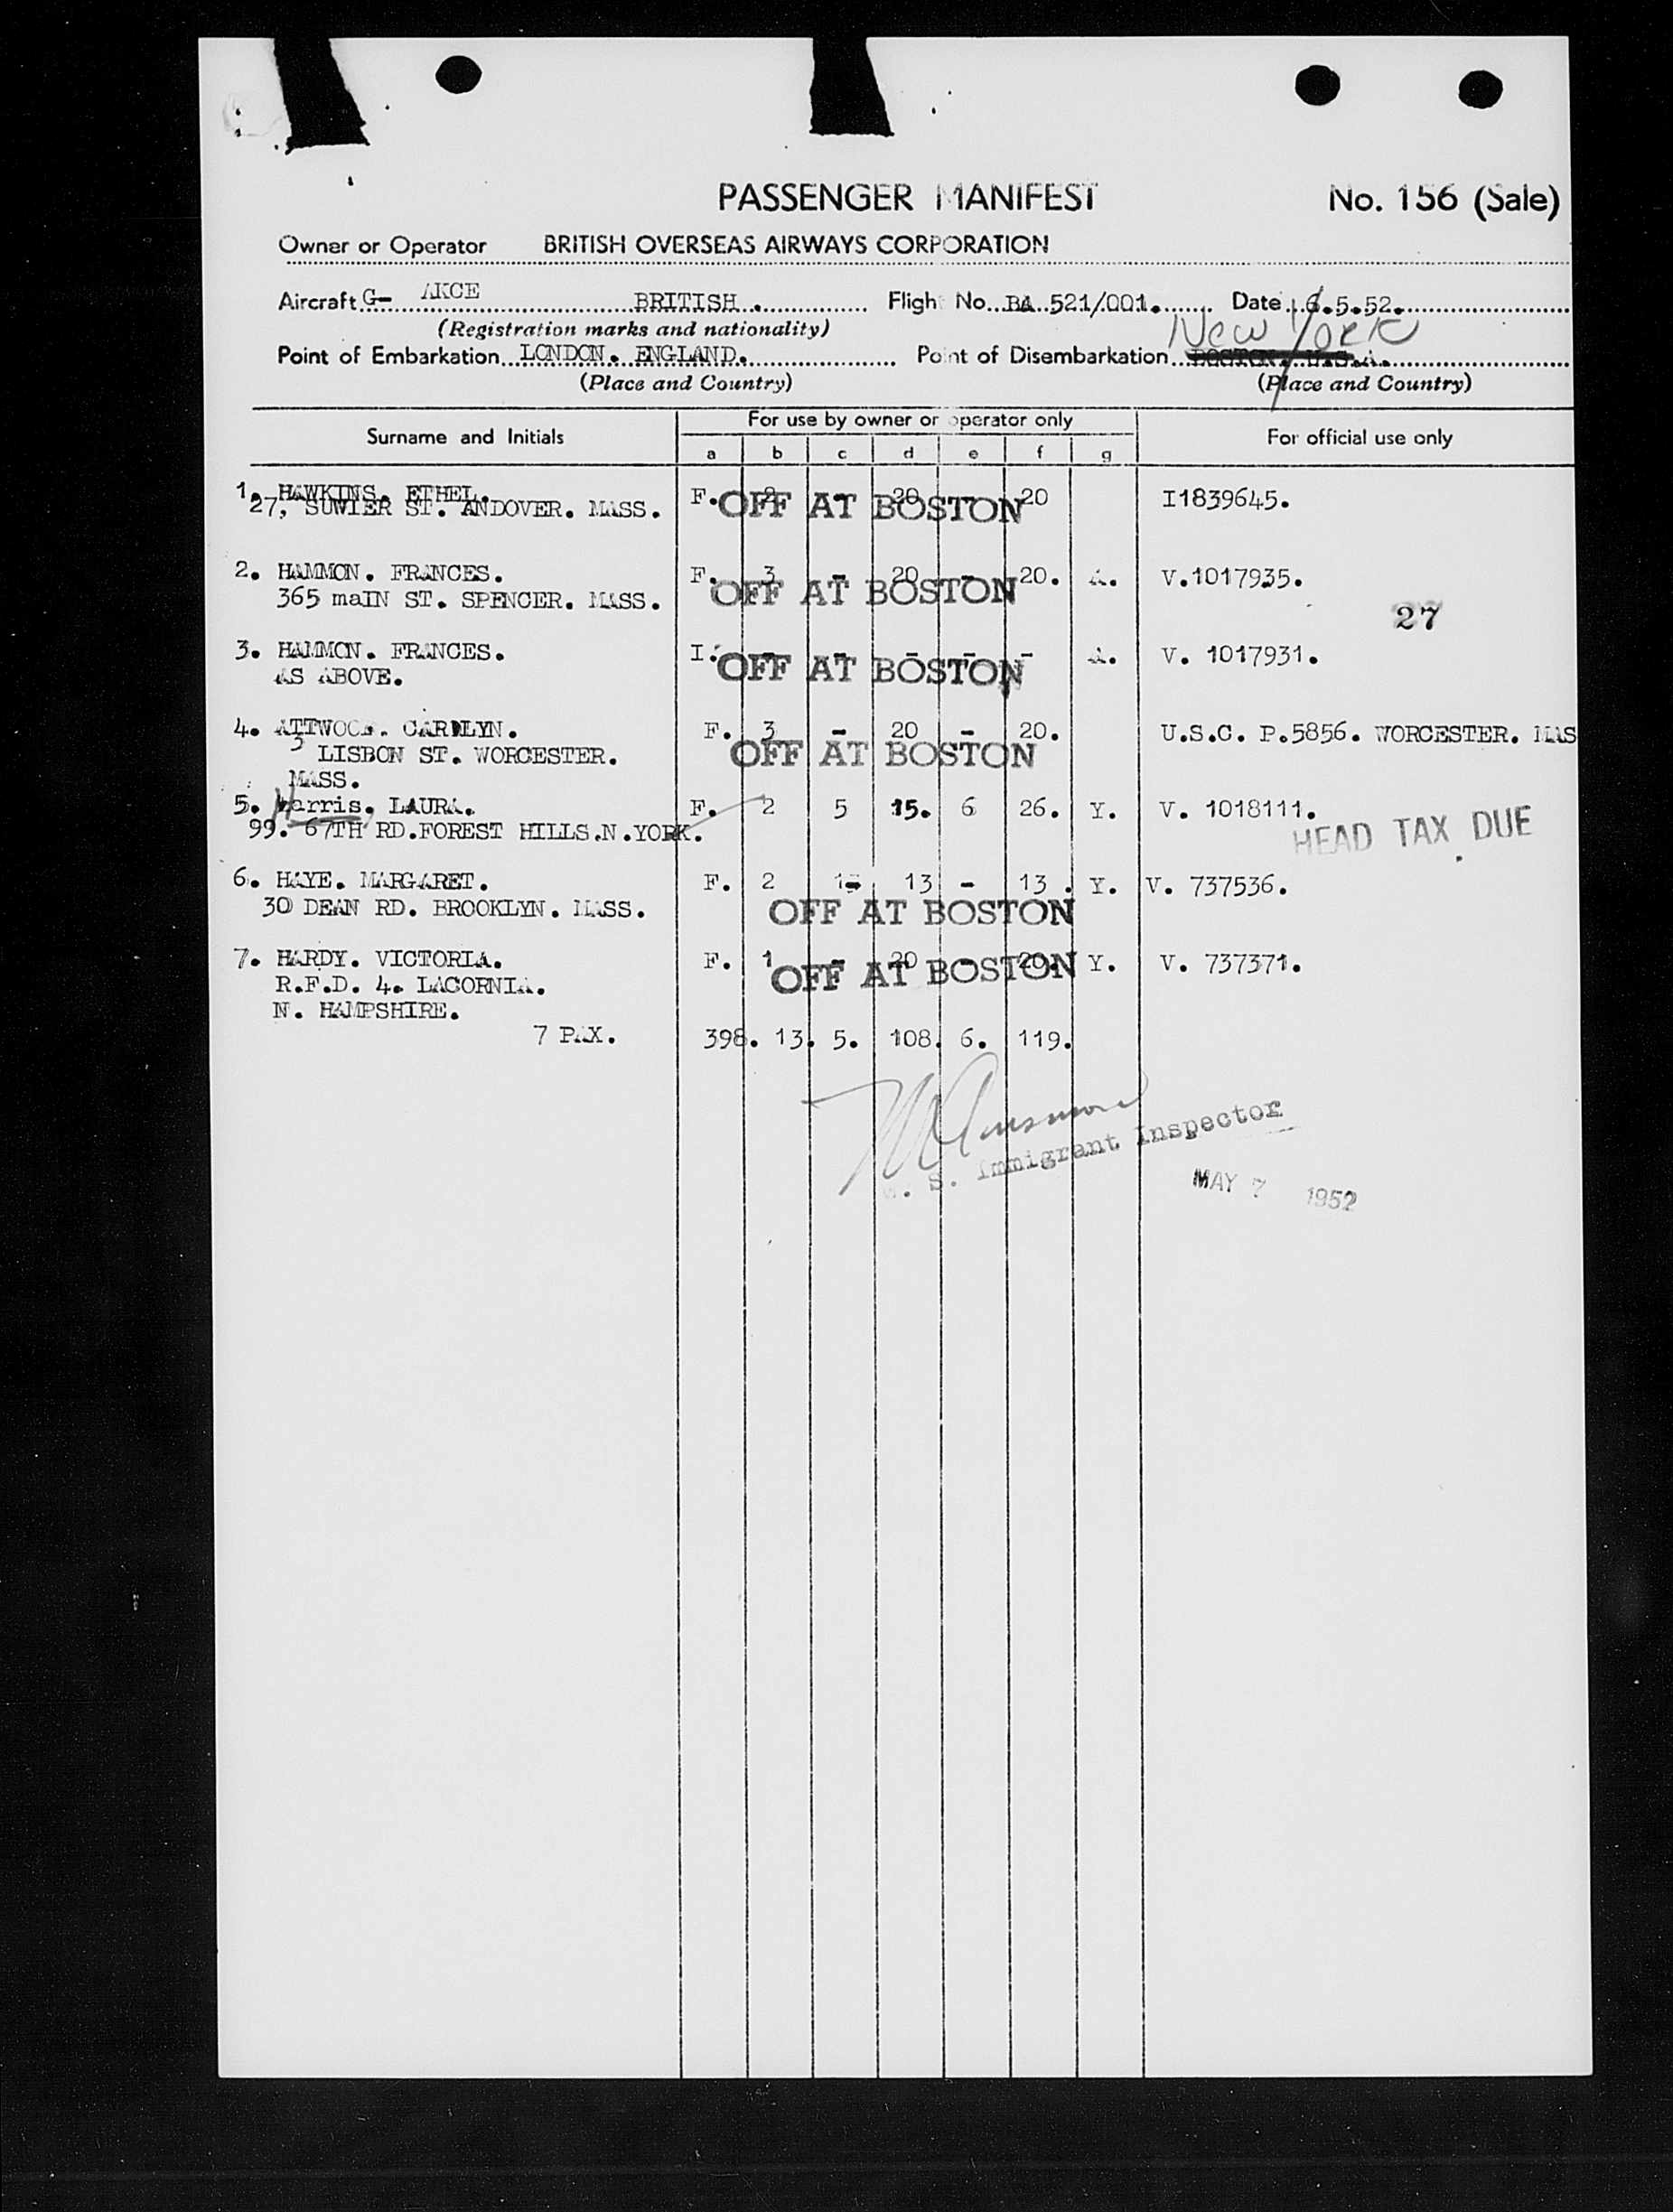 PASSENGER MANIFEST No. 156 (Sale)
Owner or Operator BRITISH OVERSEAS AIRWAYS CORPORATION
Aircraft G- AKCE BRITISH. Flight No. BA 521/001. Date 6.5.52.
(Registration marks and nationality)
New York
Point of Embarkation LONDON. ENGLAND. Point of Disembarkation BOSTON. U.S.A.
(Place and Country) (Place and Country)
Surname and Initials For use by owner or operator only For official use only
a b c d e f g
1. HAWKINS. ETHEL. F. 2 - 20 - 20 I1839645.
27, ST. ANDOVER. MASS. OFF AT BOSTON
2. HAMMON. FRANCES. F. 3 - 20 - 20. A. V.1017935.
365 maIN ST. SPENCER. MASS. OFF AT BOSTON
27
3. HAMMON. FRANCES. I. - - - - - A. V. 1017931.
AS ABOVE. OFF AT BOSTON
4. ATTWOOD. CAROLYN. F. 3 - 20 - 20. U.S.C. P.5856. WORCESTER. MAS
3 LISBON ST. WORCESTER. OFF AT BOSTON
MASS.
5. Harris. LAURA. F. 2 5 15. 6 26. Y. V. 1018111.
99. 67TH RD.FOREST HILLS.N.YORK. HEAD TAX DUE
6. HAYE. MARGARET. F. 2 - 13 - 13. Y. V. 737536.
30 DEAN RD. BROOKLYN. MASS. OFF AT BOSTON
7. HARDY. VICTORIA. F. 1 - 20 - 20. Y. V. 737371.
R.F.D. 4. LACORNIA. OFF AT BOSTON
N. HAMPSHIRE.
7 PAX. 398. 13. 5. 108. 6. 119.
U. S. Immigrant Inspector
MAY 7 1952